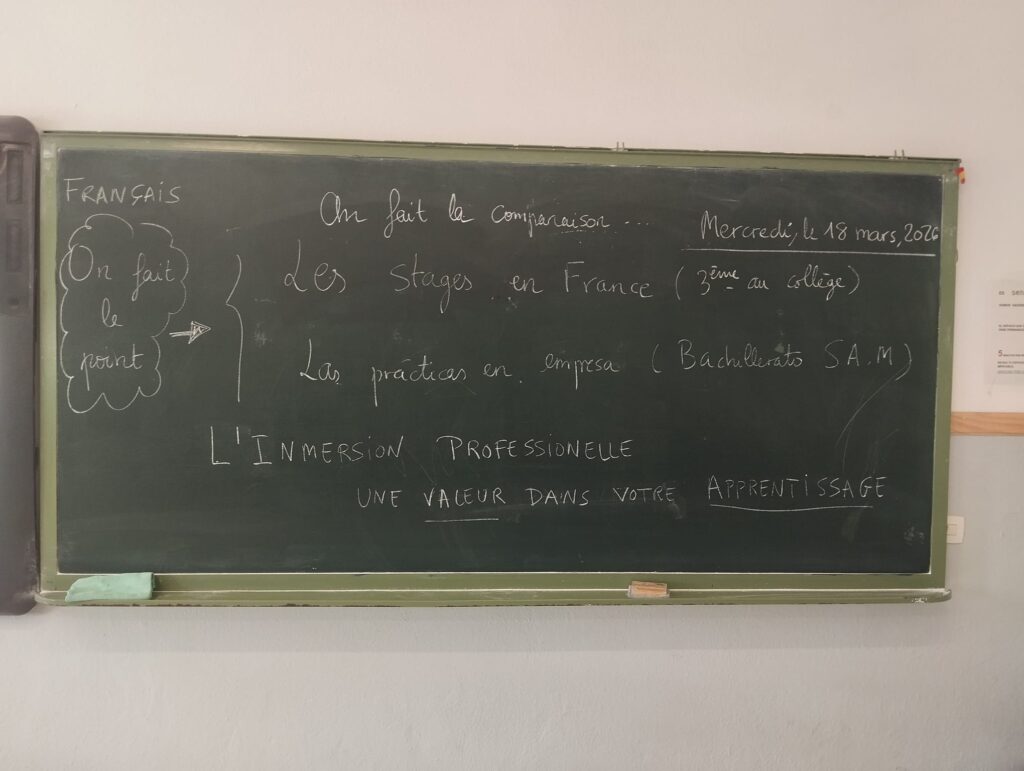 FRANÇAIS
On fait la comparaison ...
Mercredi, le 18 mars, 2026
On fait
le
point
Les stages en France (3ème au collège)
Las prácticas en empresa (Bachillerato S.A.M)
L'INMERSION PROFESSIONELLE
UNE VALEUR DANS VOTRE APPRENTISSAGE